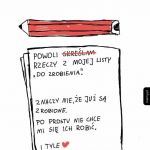 POWOLI SKREŚLAM
RZECZY Z MOJEJ LISTY
„DO ZROBIENIA".
ZNACZY NIE, ŻE JUŻ SĄ
ZROBIONE.
PO PROSTU NIE CHCE
MI SIĘ ICH ROBIĆ.
I TYLE